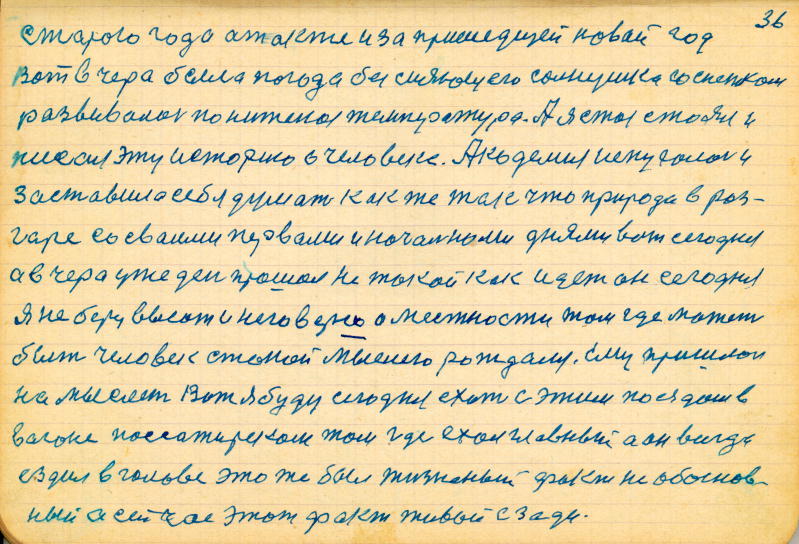 36
старого года а также и за пришедщей новай год
вот вчера была погода без сияющего солнушка со снежком
развивалас понижалас температура. А я стал стоял и
писал эту историю о человеке. Академия испугалас и
заставила себя думат как же так что природа в раз-
гаре со сваими первами и началными днями вот сегодня
а вчера уже ден прошол не такой как идет он сегодня
я не беру высот и неговерю о местности там где может
быт человек с такой мыслию рождалис. Ему пришлас
на мыслет Вот я буду сегодня ехат с этим поездом в
вагоне пассажирском там где ехал главный а он всегда
ездил в голове это же был жизненый факт не обоснов-
ный а сейчас этот факт живой сзади.